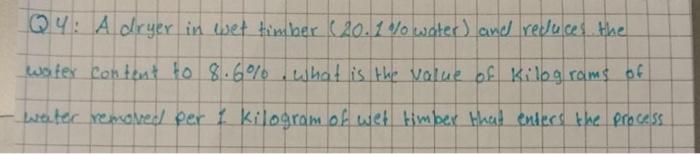 Q4: A dryer in wet timber (20.1% water) and reduces the
water content to 8.6%. what is the value of Kilograms of
water removed per 1 Kilogram of wet timber that enters the process